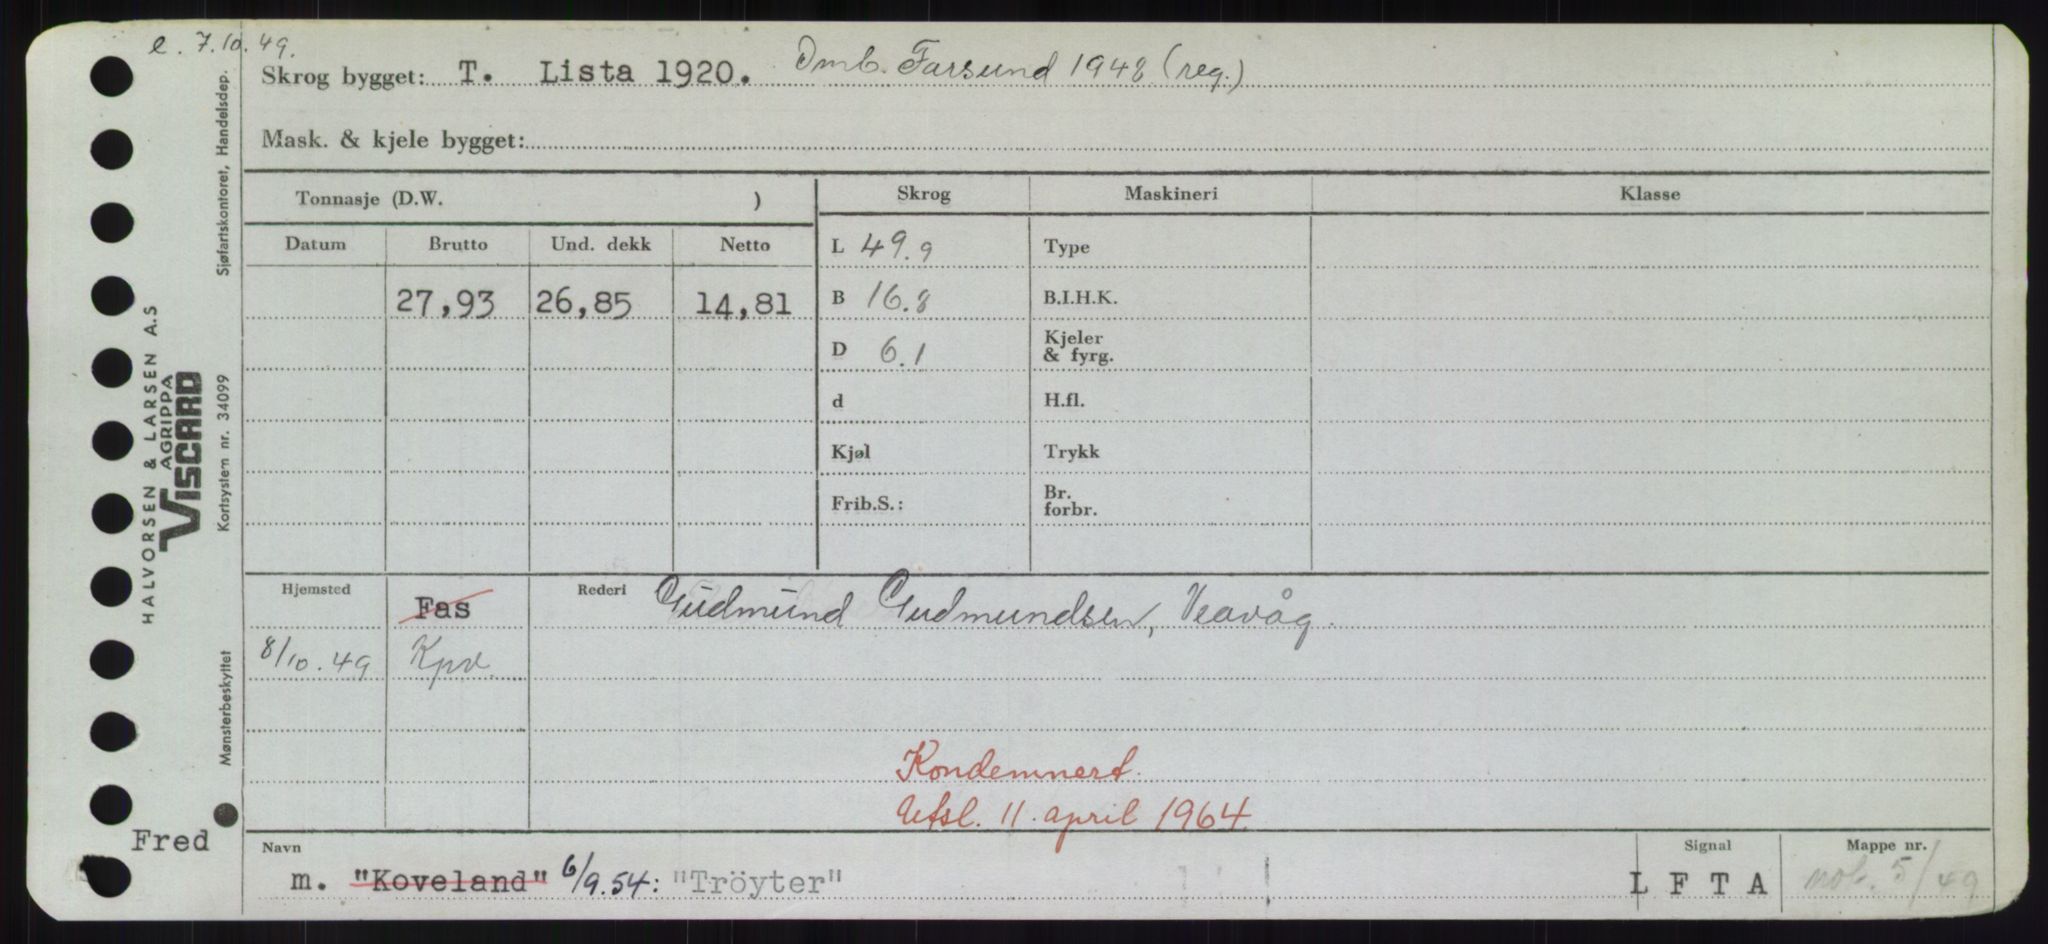 e. 7.10.49.
Skrog bygget: T. Lista 1920. Omb. Farsund 1948 (reg.)
Mask. & kjele bygget:
Tonnasje (D.W. )
Skrog Maskineri Klasse
Datum Brutto Und. dekk Netto
L 49.9 Type
27,93 26,85 14,81
B 16.8 B.I.H.K.
D 6.1 Kjeler & fyrg.
d H.fl.
Kjøl Trykk
Frib.S.: Br. forbr.
Hjemsted Fas Rederi Gudmund Gudmundsen, Veavåg.
8/10.49 Kpv.
Kondemnert.
Utsl. 11. april 1964.
Navn Signal Mappe nr.
m. "Koveland" 6/9.54: "Tröyter" L F T A not. 5/49
Fred
Sjøfartskontoret, Handelsdep.
HALVORSEN & LARSEN A.S
AGRIPPA
VISCARD
Kortsystem nr. 34099
Mønsterbeskyttet